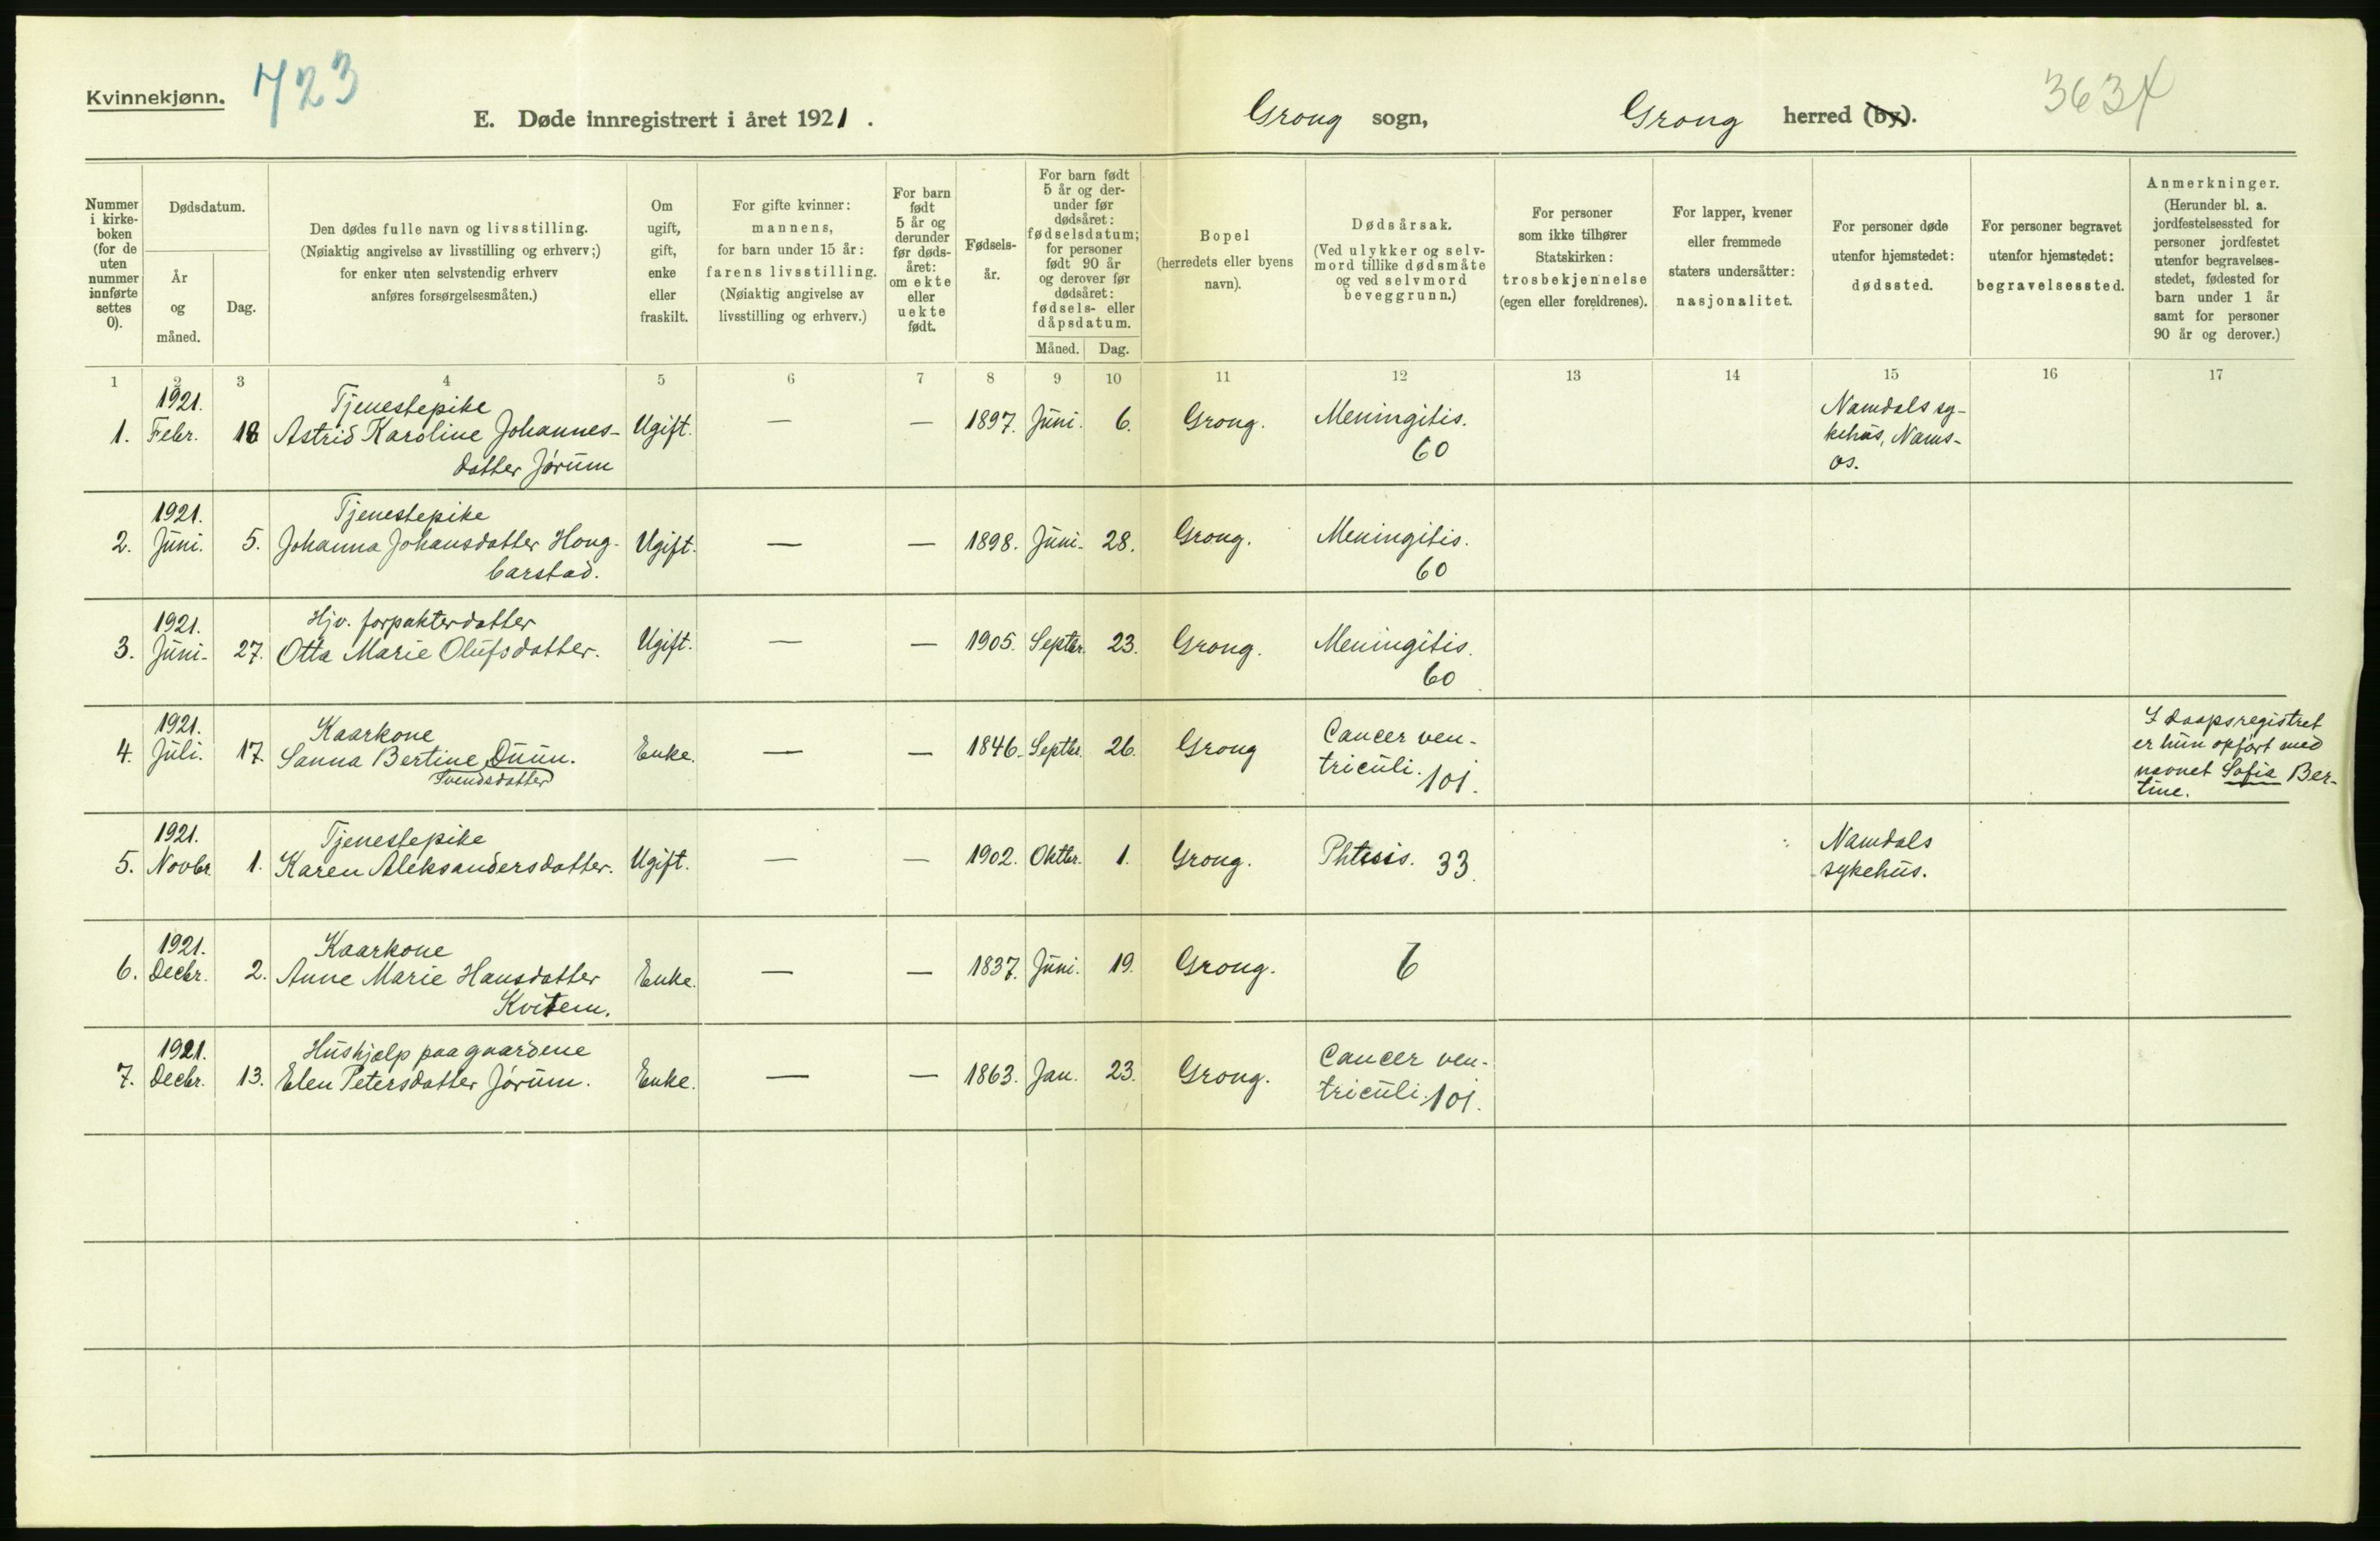 Kvinnekjønn.
723
E. Døde innregistrert i året 1921.
Grong sogn,
Grong herred (by).
3634
Nummer i kirke- boken (for de uten nummer innførte settes 0).
Dødsdatum.
År og måned.
Dag.
Den dødes fulle navn og livsstilling.
(Nøiaktig angivelse av livsstilling og erhverv;)
for enker uten selvstendig erhverv
anføres forsørgelsesmåten.)
Om ugift, gift, enke eller fraskilt.
For gifte kvinner:
mannens,
for barn under 15 år:
farens livsstilling.
(Nøiaktig angivelse av
livsstilling og erhverv.)
For barn født 5 år og derunder før døds- året: om ekte eller uekte født.
Fødsels- år.
For barn født 5 år og der- under før dødsåret: fødselsdatum; for personer født 90 år og derover før dødsåret: fødsels- eller dåpsdatum.
Måned. Dag.
Bopel
(herredets eller byens
navn).
Dødsårsak.
(Ved ulykker og selv-
mord tillike dødsmåte
og ved selvmord
beveggrunn.)
For personer
som ikke tilhører
Statskirken:
trosbekjennelse
(egen eller foreldrenes).
For lapper, kvener
eller fremmede
staters undersåtter:
nasjonalitet.
For personer døde
utenfor hjemstedet:
dødssted.
For personer begravet
utenfor hjemstedet:
begravelsessted.
Anmerkninger.
(Herunder bl. a.
jordfestelsessted for
personer jordfestet
utenfor begravelses-
stedet, fødested for
barn under 1 år
samt for personer
90 år og derover.)
1 2 3 4 5 6 7 8 9 10 11 12 13 14 15 16 17
1921. Tjenestepike Namdals sy-
1. Febr. 18 Astrid Karoline Johannes- Ugift. — — 1897. Juni. 6. Grong. Meningitis. kehus, Nams-
datter Jørum 60 os.
1921. Tjenestepike
2. Juni. 5. Johanna Johansdatter Hong- Ugift. — — 1898. Juni. 28. Grong. Meningitis.
barstad. 60
1921. Hjv. forpakterdatter
3. Juni. 27. Otta Marie Olufsdatter. Ugift. — — 1905. Septbr. 23. Grong. Meningitis.
60
1921. Kaarkone Cancer ven- I daapsregistret
4. Juli. 17. Sanna Bertine Duun. Enke. — — 1846. Septbr. 26. Grong triculi. 101. er hun opført med
Svendsdatter navnet Sofie Ber-
tine.
1921. Tjenestepike Namdals
5. Novbr. 1. Karen Aleksandersdatter. Ugift. — — 1902. Oktbr. 1. Grong. Phtisis. 33. sykehus.
1921. Kaarkone
6. Decbr. 2. Anne Marie Hansdatter Enke. — — 1837. Juni. 19. Grong. 6
Kvitem.
1921. Hushjælp paa gaardene Cancer ven-
7. Decbr. 13. Elen Petersdatter Jørum. Enke. — — 1863. Jan. 23. Grong. triculi. 101.